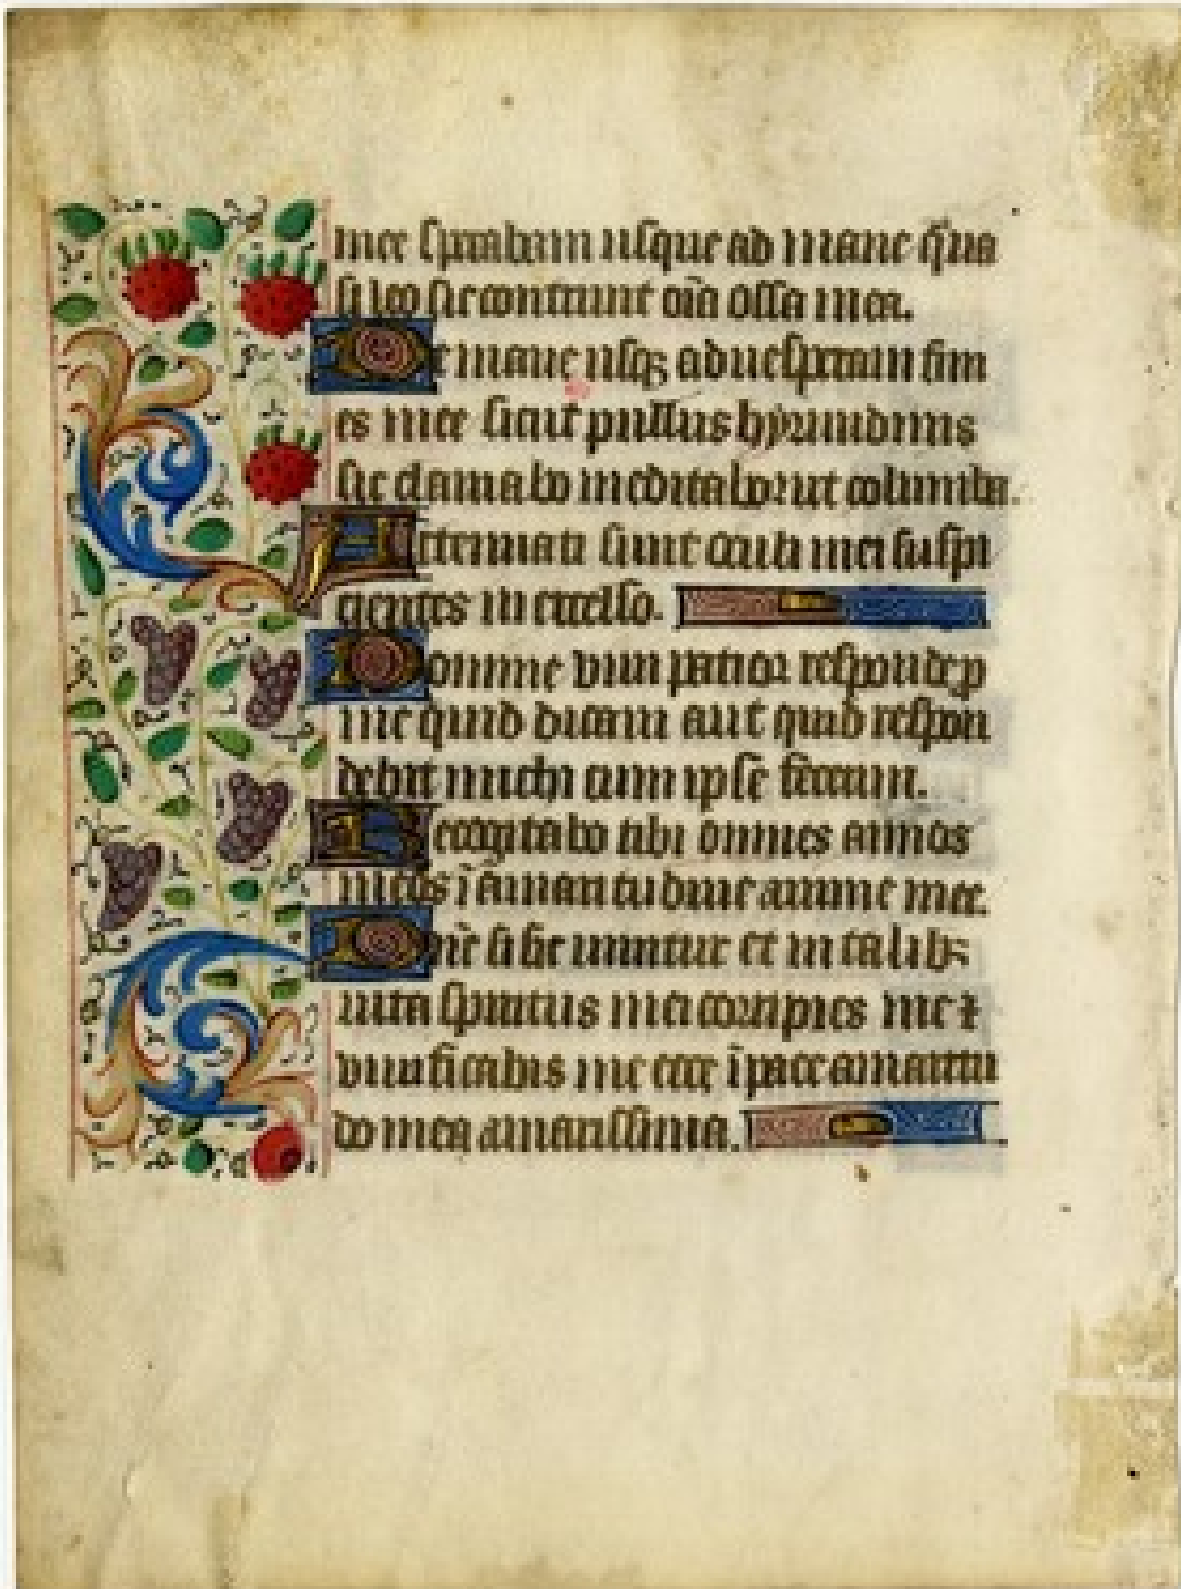 me sperabam usque ad mane q̃ua
si leo sic contriuit oĩa ossa mea.
De mane usqꝫ ad uesperam fini
es me sicut pullus hyrundinis
sic clamabo meditabor ut columba.
Attenuati sunt oculi mei suspi
cientes in excelso.
Domine uim patior responde ꝓ
me quid dicam aut quid respon
debit michi cum ipse fecerim.
Recogitabo tibi omnes annos
meos ĩ amaritudine anime mee.
Dñe si sic uiuitur et in talibꝫ
uita spiritus mei corripies me ⁊
uiuificabis me ecce ĩ pace amaritu
do mea amarissima.